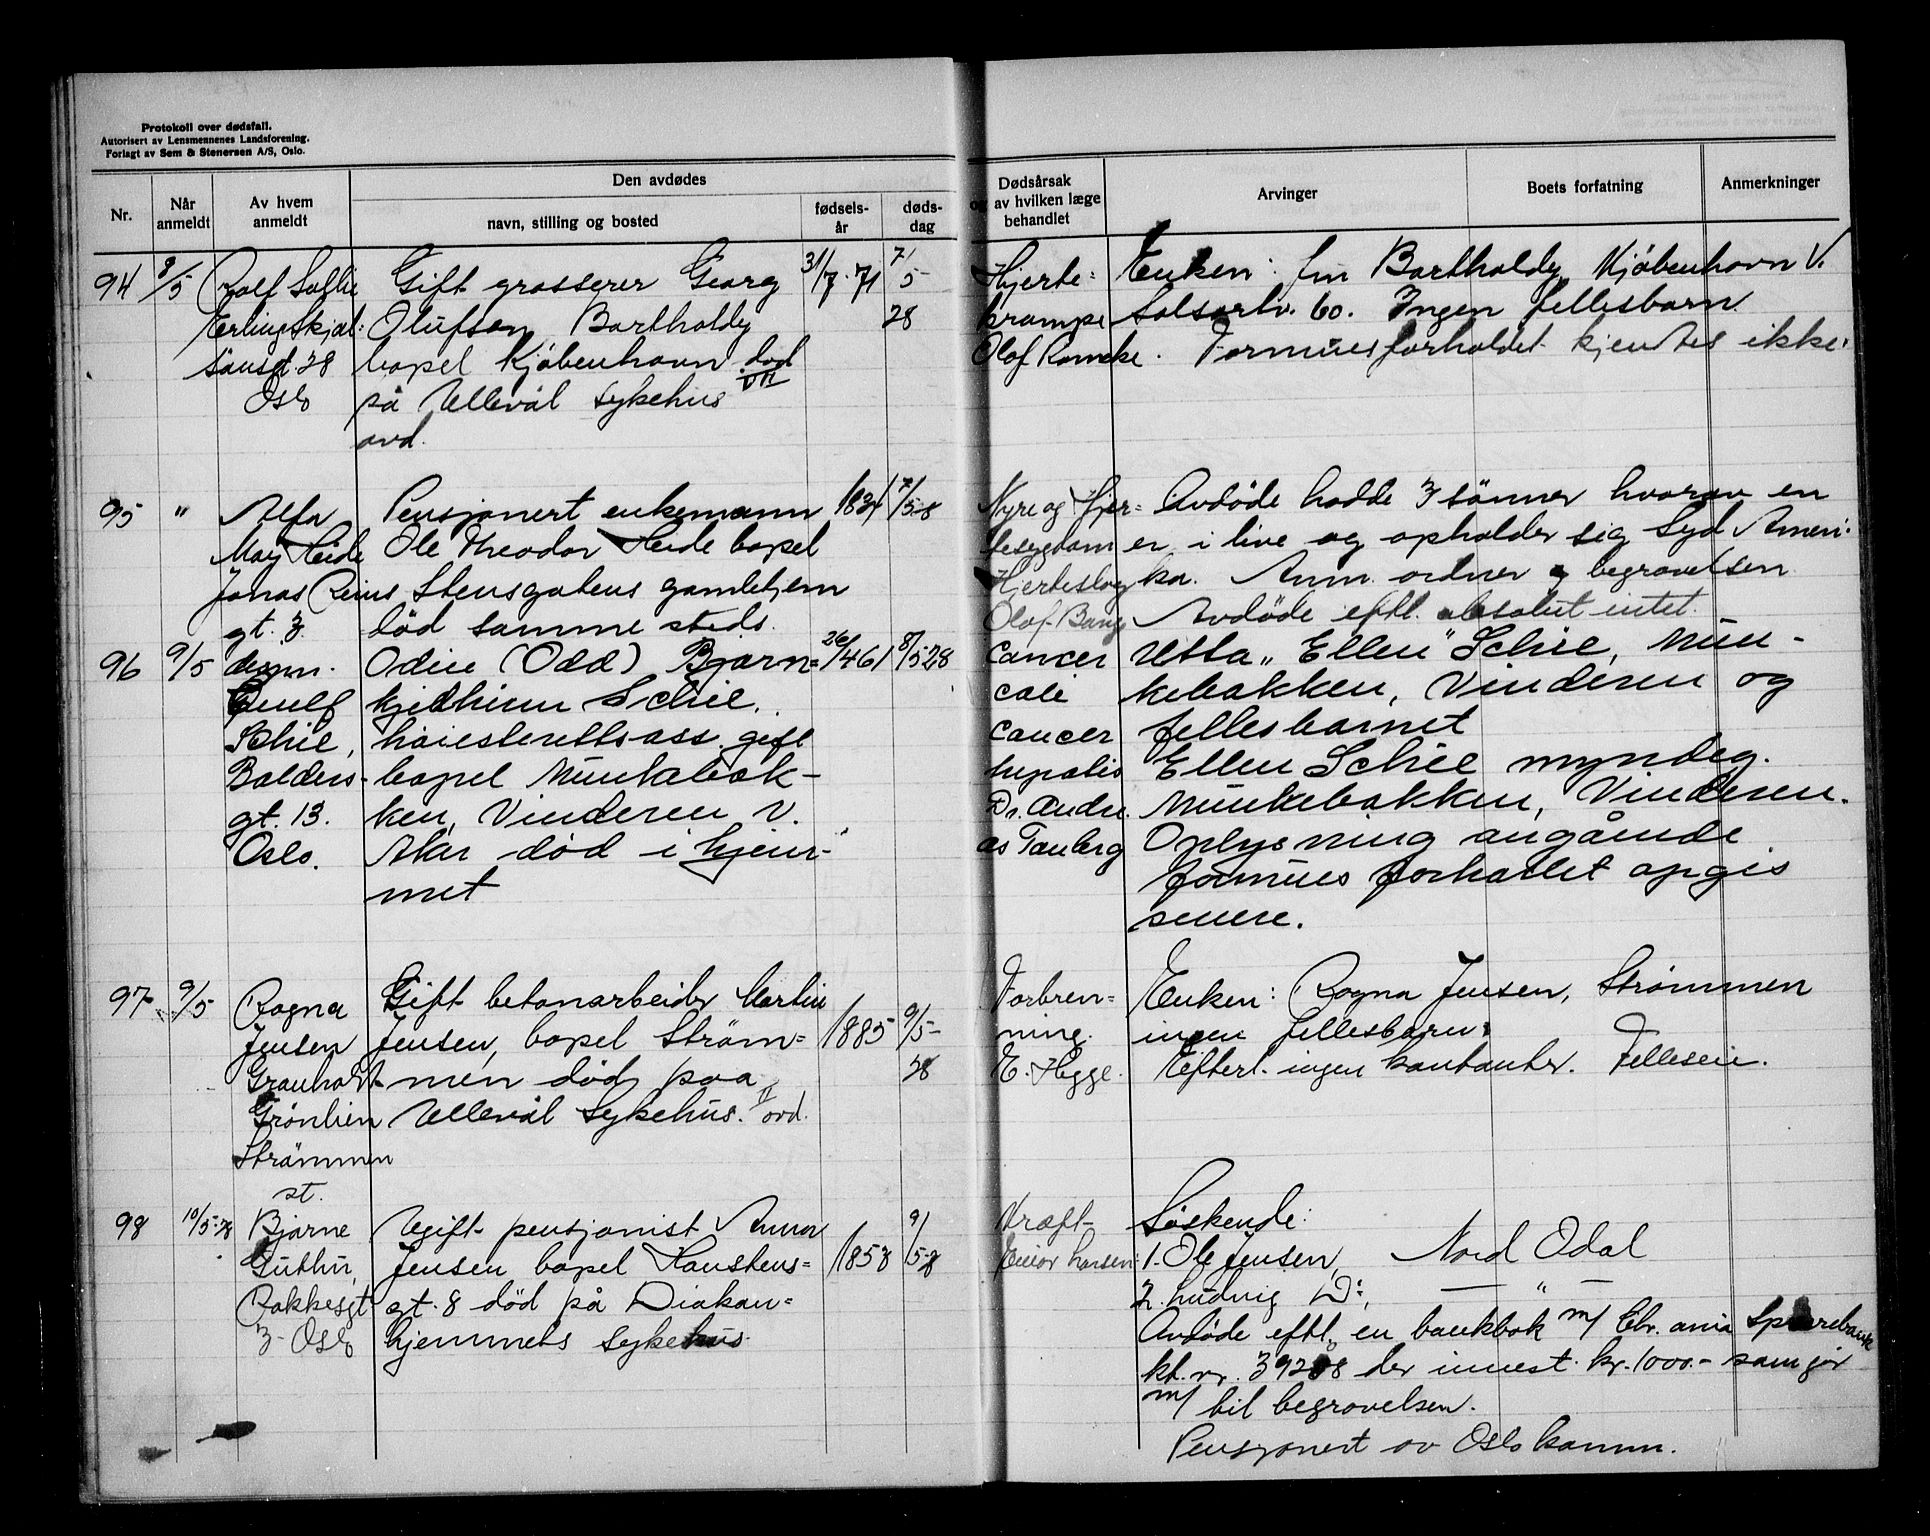 Protokoll over dødsfall.
Autorisert av Lensmennenes Landsforening.
Forlagt av Sem & Stenersen A/S, Oslo.
Nr.
Når anmeldt
Av hvem anmeldt
Den avdødes
navn, stilling og bosted
fødsels-år
døds-dag
Dødsårsak og av hvilken læge behandlet
Arvinger
Boets forfatning
Anmerkninger
94
8/5
Rolf Sollie
Erling Skjal=
sønsgt. 28
Oslo
Gift grosserer Georg
Olufsen Bartholdy
bopel Kjøbenhavn død
på Ullevål sykehus VII
avd.
31/7-71
7/5
28
Hjerte=
krampe
Olof Romcke.
Enken: fru Bartholdy, Kjøbenhavn V.
Solsortv. 60. Ingen fellesbarn.
Formuesforholdet kjendtes ikke.
95
"
Alfr
May Heide
Jonas Reins
gt. 3.
Pensjonert enkemann
Ole Theodor Heide bopel
Stensgatens gamlehjem
død samme steds.
1834
7/5-28
Nyre og Hjer=
tesygdom
Hjerteslag
Olof Bang
Avdøde hadde 3 sønner hvorav en
er i live og opholder sig Syd Ameri=
ka. Anm. ordner begravelsen.
Avdøde eftl. absolut intet.
96
9/5
Schie,
Balders-
gt. 13.
Oslo.
Odin (Odd) Bjarn=
kjedhinn Schie.
høiesterettsass. gift
bopel Munkebak-
ken, Vinderen V.
Aker død i hjem-
met
26/4 61
8/5 28
Cancer
coli
cancer
hepatis
Dr. Andre
as Tanberg
Utta "Ellen" Schie, Mun-
kebakken, Vinderen og
fellesbarnet
Ellen Schie myndig.
Munkebakken, Vinderen.
Oplysning angående
formues forholdet opgis
senere.
97
9/5
Ragna
Jensen
Granholt
Grønlien
Strømmen
st.
Gift betonarbeider Martin
Jensen, bopel Strøm=
men død paa
Ullevål sykehus. II avd.
1885
9/5-
28
Forbren=
ning.
E. Hegge.
Enken: Ragna Jensen, Strømmen
ingen fellesbarn.
Efterl. ingen kontanter. Felleseie.
98
10/5-28
Bjarne
Guthu,
Bakkegt
3- Oslo
Ugift pensjonist Anna
Jensen bopel Haustens=
gt. 8 død på Diakon=
hjemmets sykehus.
1853
9/5-28
Kræft
Einar Larsen
Søskende:
1. Ole Jensen, Nord Odal
2. Ludvig Do:, — " —
Avdøde eftl. en bankbok m/ Chr. ania Sparebank
kt. nr. 39208 der innest. kr. 1000.- som gør
m/ bil begravelsen.
Pensjonert av Oslo komm.